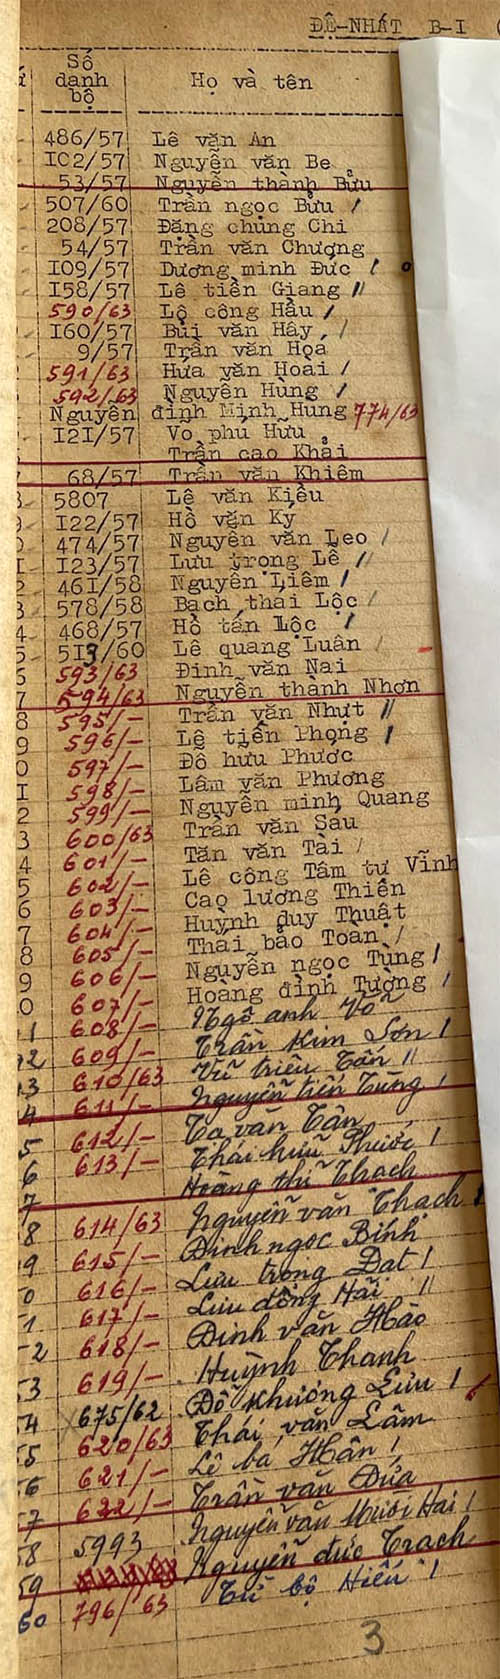 ĐỆ-NHẤT B-I (
Số danh bộ Họ và tên
486/57 Lê văn An
I02/57 Nguyễn văn Be
53/57 Nguyễn thành Bửu
507/60 Trần ngọc Bửu /
208/57 Đặng chủng Chi
54/57 Trần văn Chương
I09/57 Dương minh Đức /
I58/57 Lê tiền Giang //
590/63 Lô công Hầu /
I60/57 Bùi văn Hây /
9/57 Trần văn Hoa
591/63 Hứa văn Hoài /
592/63 Nguyễn Hùng /
Nguyễn đình Minh Hung 774/63
I2I/57 Vo phú Hữu
Trần cao Khải
68/57 Trần văn Khiêm
5807 Lê văn Kiều
I22/57 Hồ văn Ký
474/57 Nguyễn văn Leo /
I23/57 Lưu trọng Lễ //
461/58 Nguyễn Liêm /
578/58 Bạch thai Lộc /
468/57 Hồ tấn Lộc /
513/60 Lê quang Luân /
593/63 Đinh văn Nai
594/63 Nguyễn thành Nhơn
595/- Trần văn Nhựt //
596/- Lê tiến Phong /
597/- Đỗ hưu Phước
598/- Lâm văn Phương
599/- Nguyễn minh Quang
600/63 Trần văn Sau
601/- Tăn văn Tài /
602/- Lê công Tâm tự Vĩnh
603/- Cao lương Thiện
604/- Huỳnh duy Thuật
605/- Thai bảo Toàn /
606/- Nguyễn ngọc Tùng /
607/- Hoàng đình Tường /
608/- Ngô anh Võ
609/- Trần Kim Sơn /
610/63 Vũ triêu Tân //
611/- Nguyễn tiến Tùng /
612/- Tạ văn Tân
613/- Thái hữu Phước /
Hoàng thi Thạch
614/63 Nguyễn văn Thạch /
615/- Đinh ngọc Bính
616/- Lưu trọng Đạt /
617/- Lưu đồng Hải //
618/- Đinh văn Hảo
619/- Huỳnh Thanh
675/62 Đỗ Khương Lưu /
620/63 Thái văn Lâm
621/- Lê bá Hân /
622/- Trần văn Đứa
5993 Nguyễn văn Mười Hai /
59 Nguyễn đức Trạch
60 796/63 Từ bộ Hiếu /
3